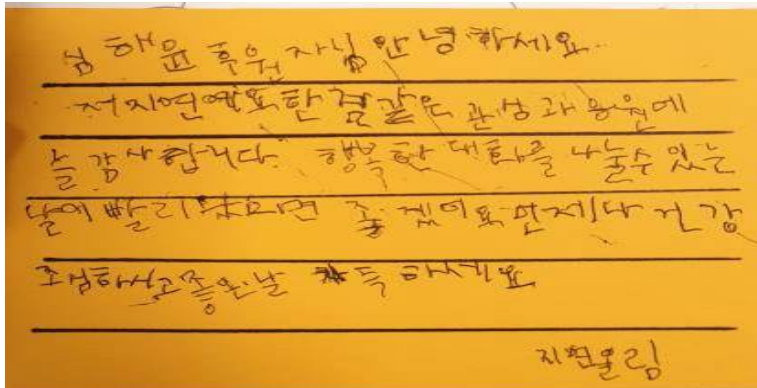 남해윤 후원자님 안녕하세요.
저 지연에요 한결같은 관심과 응원에
늘 감사합니다. 행복한 대화를 나눌수 있는
날이 빨리 왔으면 좋겠어요 언제나 건강
조심하시고 좋은날 가득하세요
지연올림